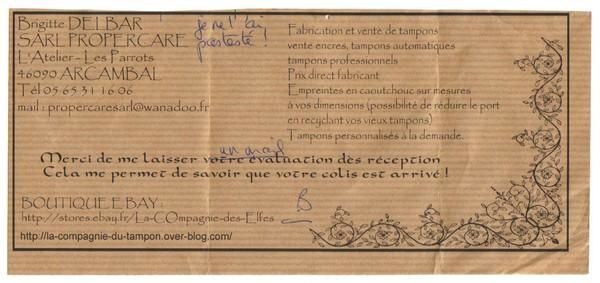 Brigitte DELBAR
SARL PROPERCARE
L'Atelier - Les Parrots
46090 ARCAMBAL
Tél 05 65 31 16 06
mail : propercaresarl@wanadoo.fr
je ne l'ai
pas testé !
Fabrication et vente de tampons
vente encres, tampons automatiques
tampons professionnels
Prix direct fabricant
Empreintes en caoutchouc sur mesures
à vos dimensions (possibilité de réduire le port
en recyclant vos vieux tampons)
Tampons personnalisés à la demande.
un mail
Merci de me laisser votre évaluation dès réception
Cela me permet de savoir que votre colis est arrivé !
B
BOUTIQUE EBAY :
http://stores.ebay.fr/La-COmpagnie-des-Elfes
http://la-compagnie-du-tampon.over-blog.com/